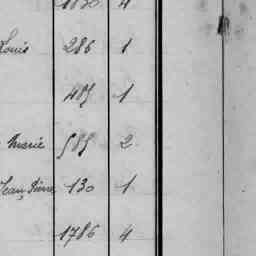 1830 4
Louis 286 1
485 1
Marie 585 2
Jean Pierre 130 1
1786 4